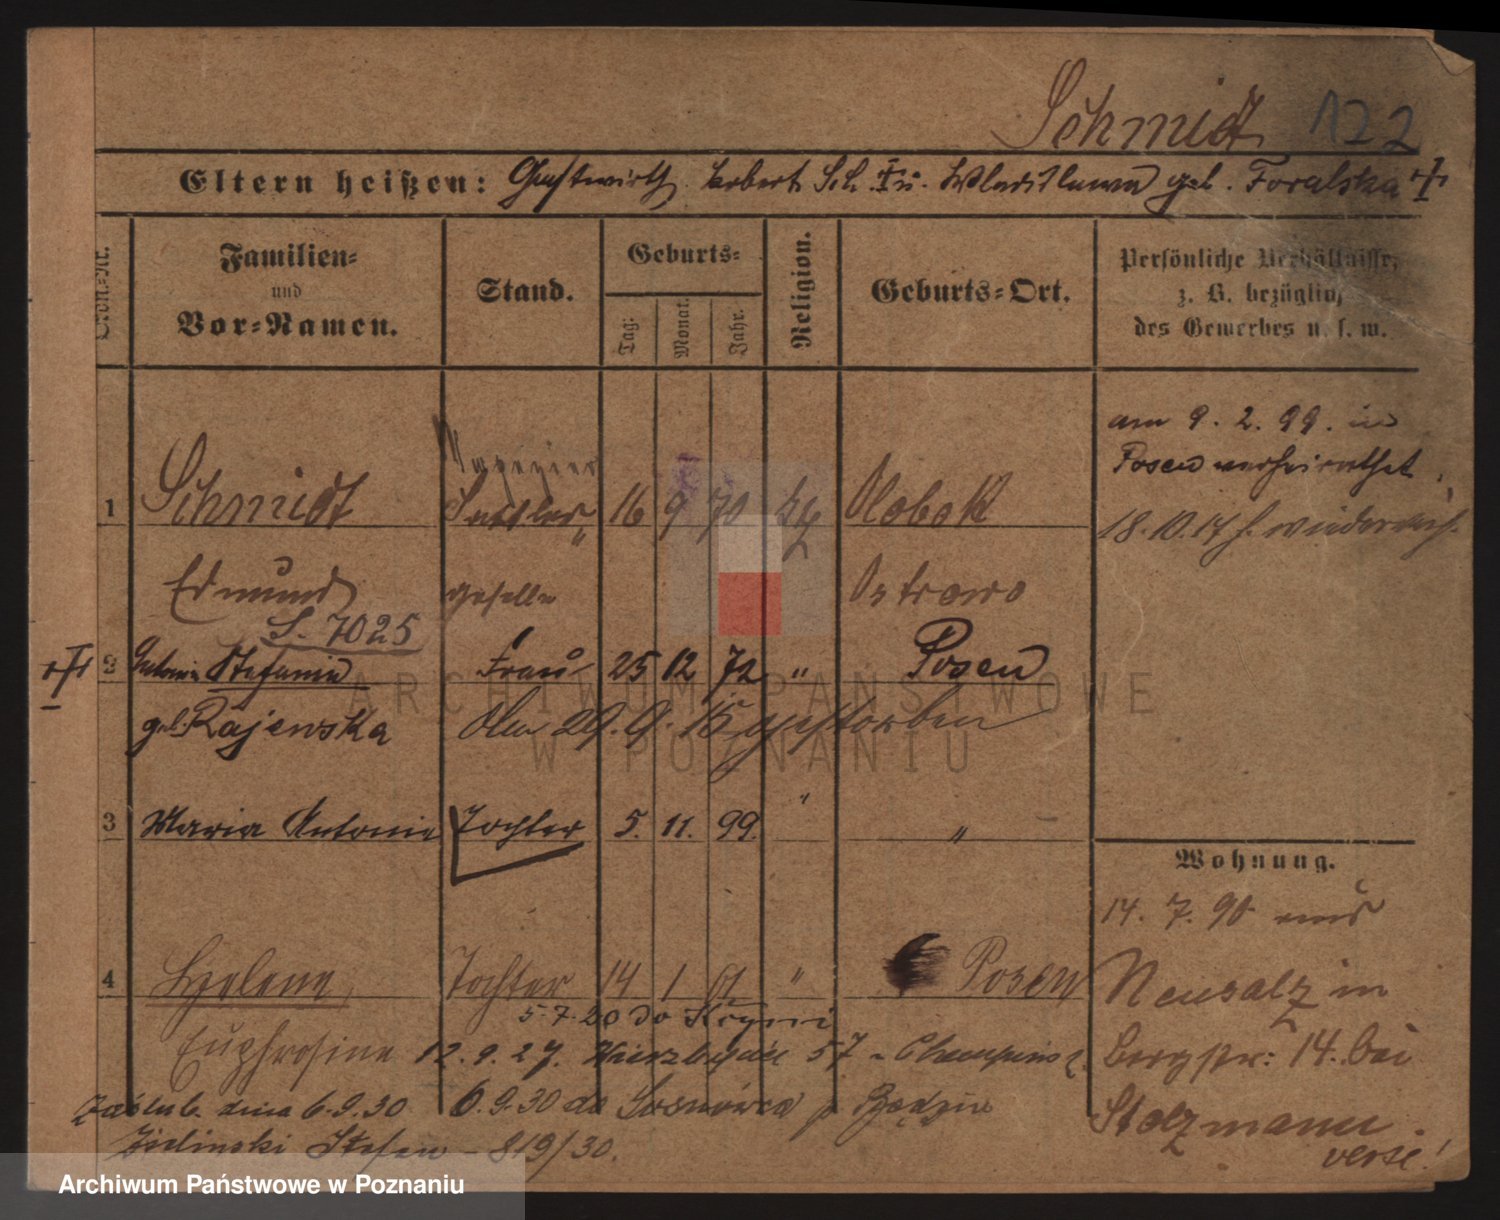 Schmidt 122
Eltern heißen: Gastwirth Robert Sch. u. Wladislawa geb. Foralska
Ordn.-Nr.
Familien-
und
Vor-Namen.
Stand.
Geburts-
Tag:
Monat.
Jahr.
Religion.
Geburts-Ort.
Persönliche Verhältnisse,
z. B. bezüglich
des Gewerbes u. s. w.
am 9. 2. 99. in
Posen verheirathet
1 Schmidt Sattler 16 9 70 Olobok
18.10.17
Edmund geselle Ostrowo
S. 7025
2 Antonie Stefania Frau 25 12 72 " Posen
geb. Rajewska Am 29. 9. 15 gestorben
3 Maria Antonie Tochter 5. 11. 99. " "
Wohnung.
14. 7. 90 aus
4 Helene Tochter 14 1 01 " Posen
Neusalz in
5.7.20 do
Euphrosine 12.9.27. 57
Bergstr: 14. bei
Zaślub. dnia 6.9.30 6.9.30 do Sosnowca p. Będzin
Stolzmann.
Zieliński Stefan - 819/30.
verte!
ARCHIWUM PAŃSTWOWE
W POZNANIU
Archiwum Państwowe w Poznaniu